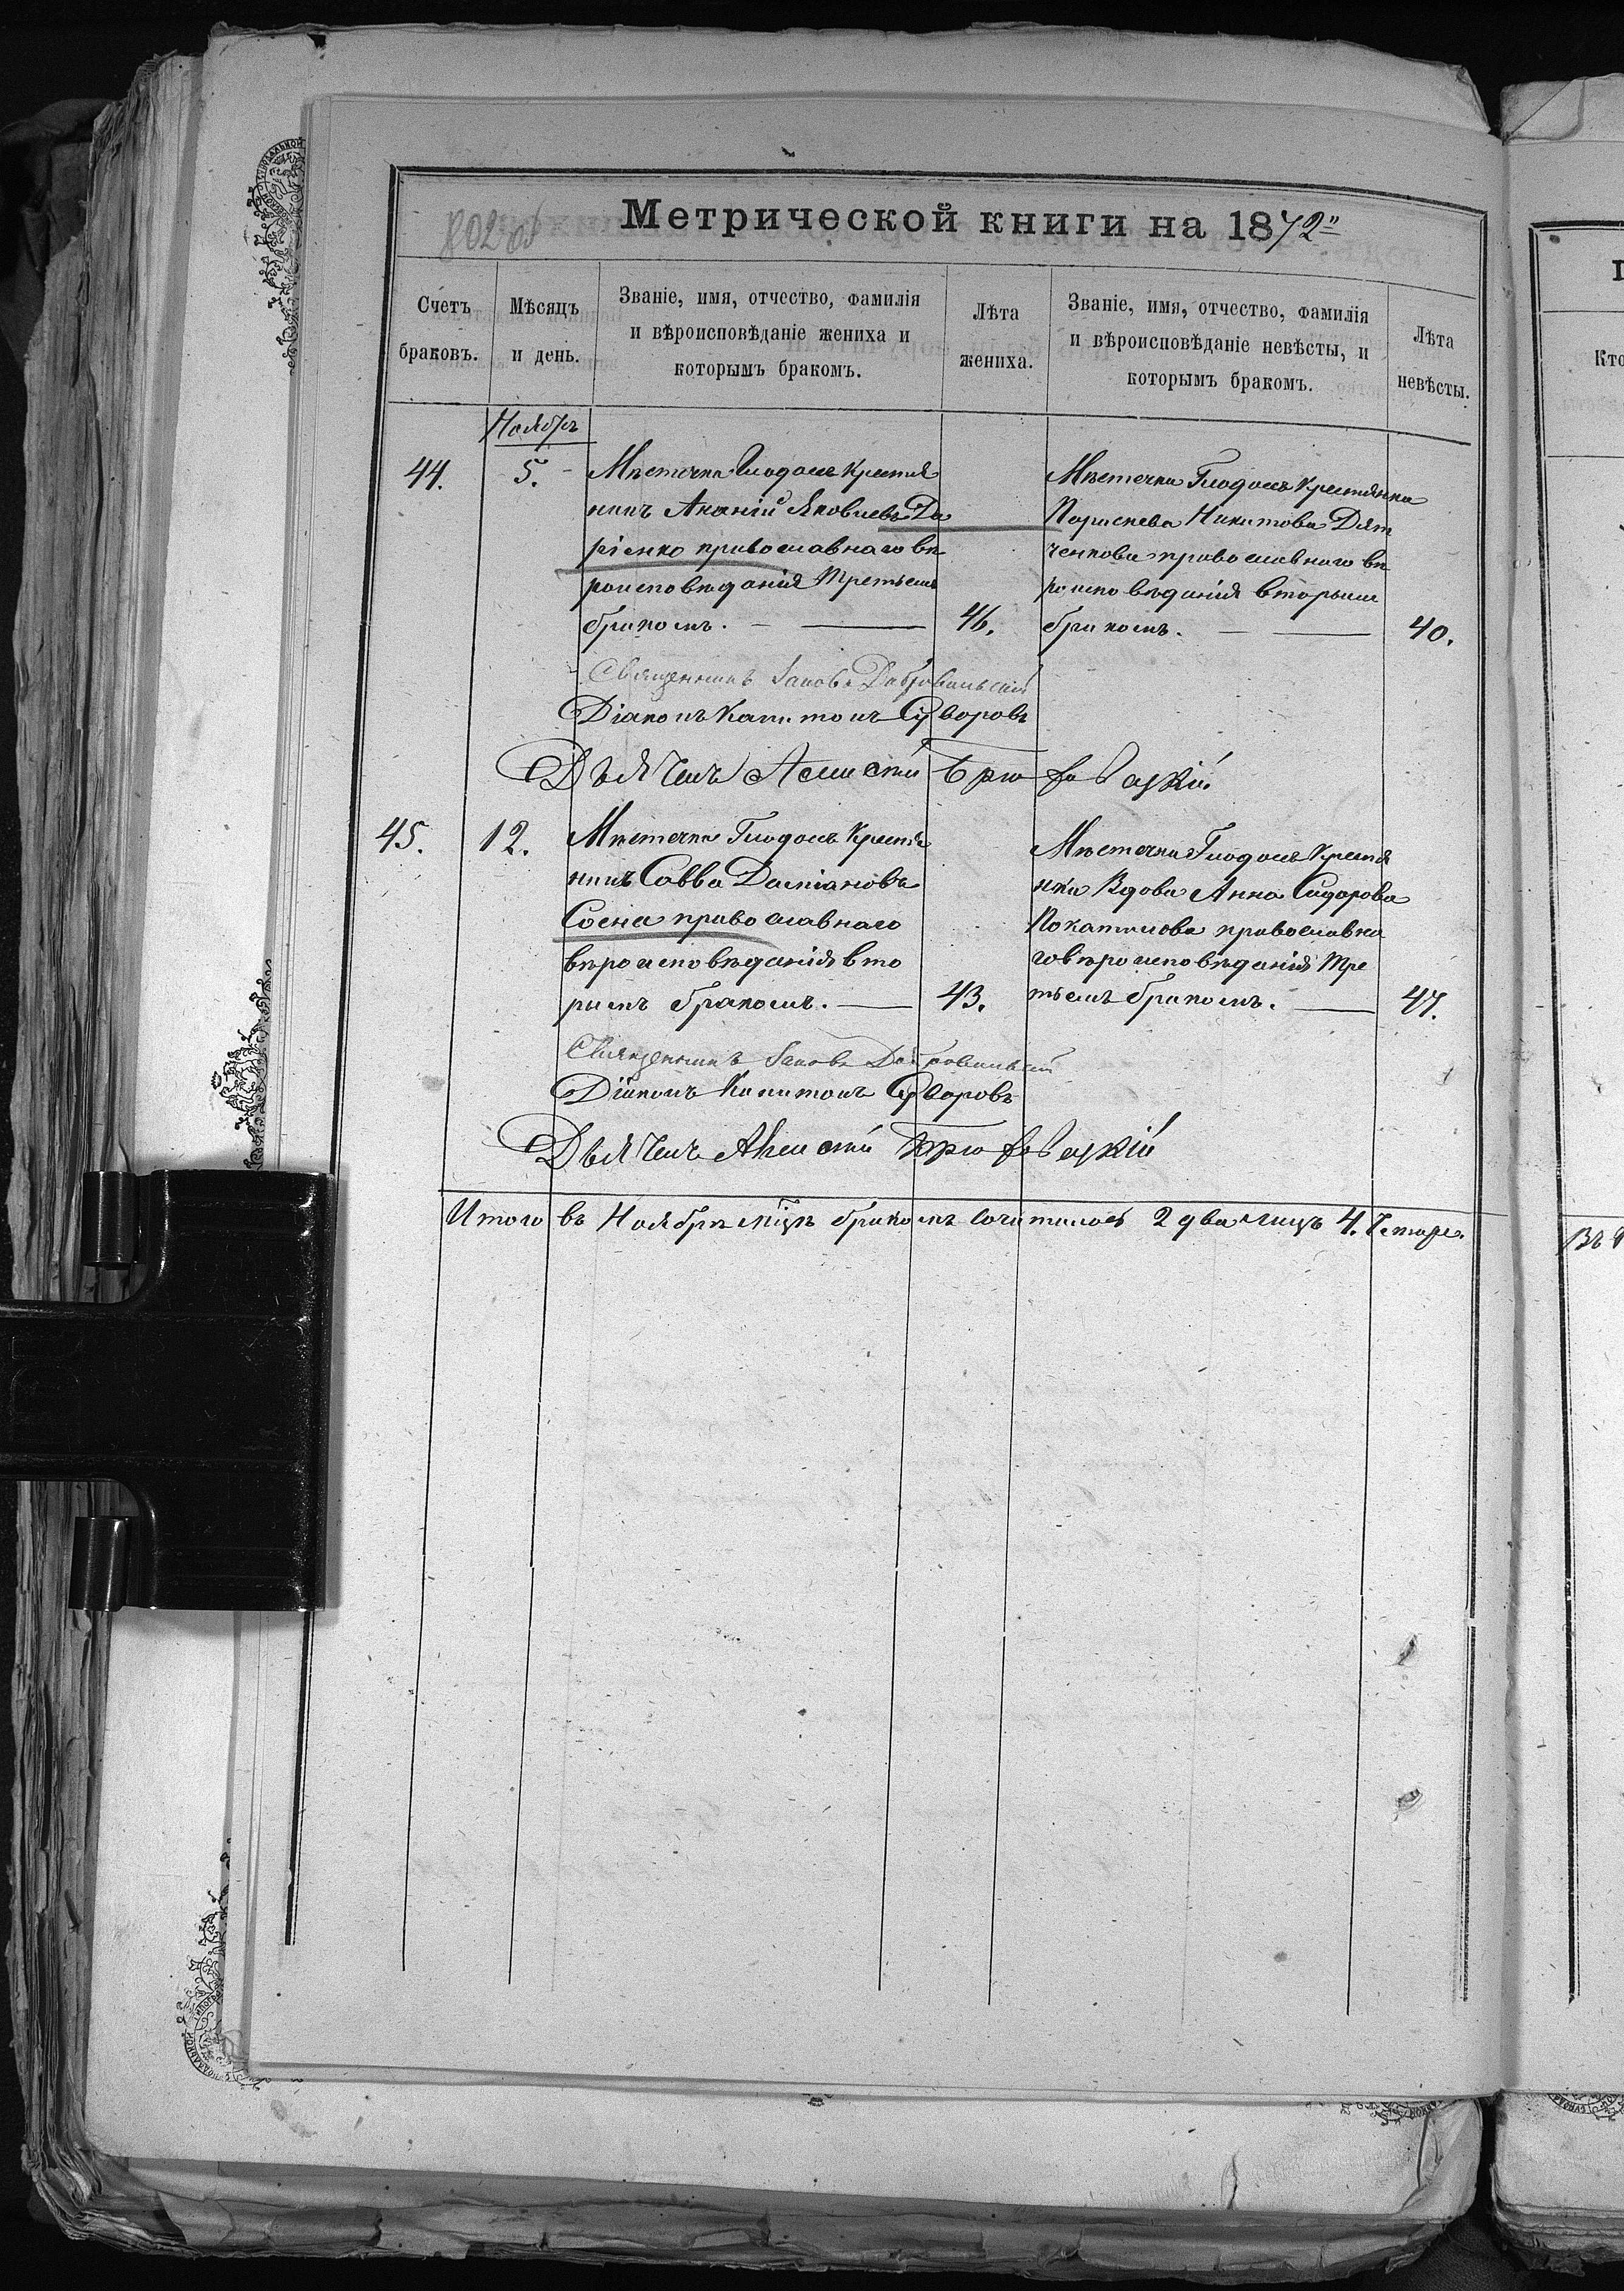 802 об
Метрической книги на 1872"
Счетъ браковъ.
Мѣсяцъ и день.
Званіе, имя, отчество, фамилія
и вѣроисповѣданіе жениха и
которымъ бракомъ.
Лѣта жениха.
Званіе, имя, отчество, фамилія
и вѣроисповѣданіе невѣсты, и
которымъ бракомъ.
Лѣта невѣсты.
Ноябрь
44.
5.
Мѣстечка Глодосъ крестья
нинъ Ананій Яковлевъ Да
ріенко православнаго вѣ
роисповѣданія третьимъ
бракомъ.
46.
Мѣстечка Глодосъ крестьянка
Параскева Никитова Дят
ченкова православнаго вѣ
роисповѣданія вторымъ
бракомъ.
40.
Священникъ Іаковъ Добровольскій
Діаконъ Капитонъ Суворовъ
Дьячекъ
45.
12.
Мѣстечка Глодосъ крестья
нинъ Савва Даміановъ
Сосна православнаго
вѣроисповѣданія вто
рымъ бракомъ.
43.
Мѣстечка Глодосъ крестья
нка вдова Анна Сидорова
Покатилова православна
го вѣроисповѣданія тре
тьимъ бракомъ.
47.
Священникъ Іаковъ Добровольскій
Діаконъ Капитонъ Суворовъ
Дьячекъ
Итого въ Ноябрѣ мцѣ бракомъ сочиталось 2 два лицъ 4. четыре.
Кто
Въ